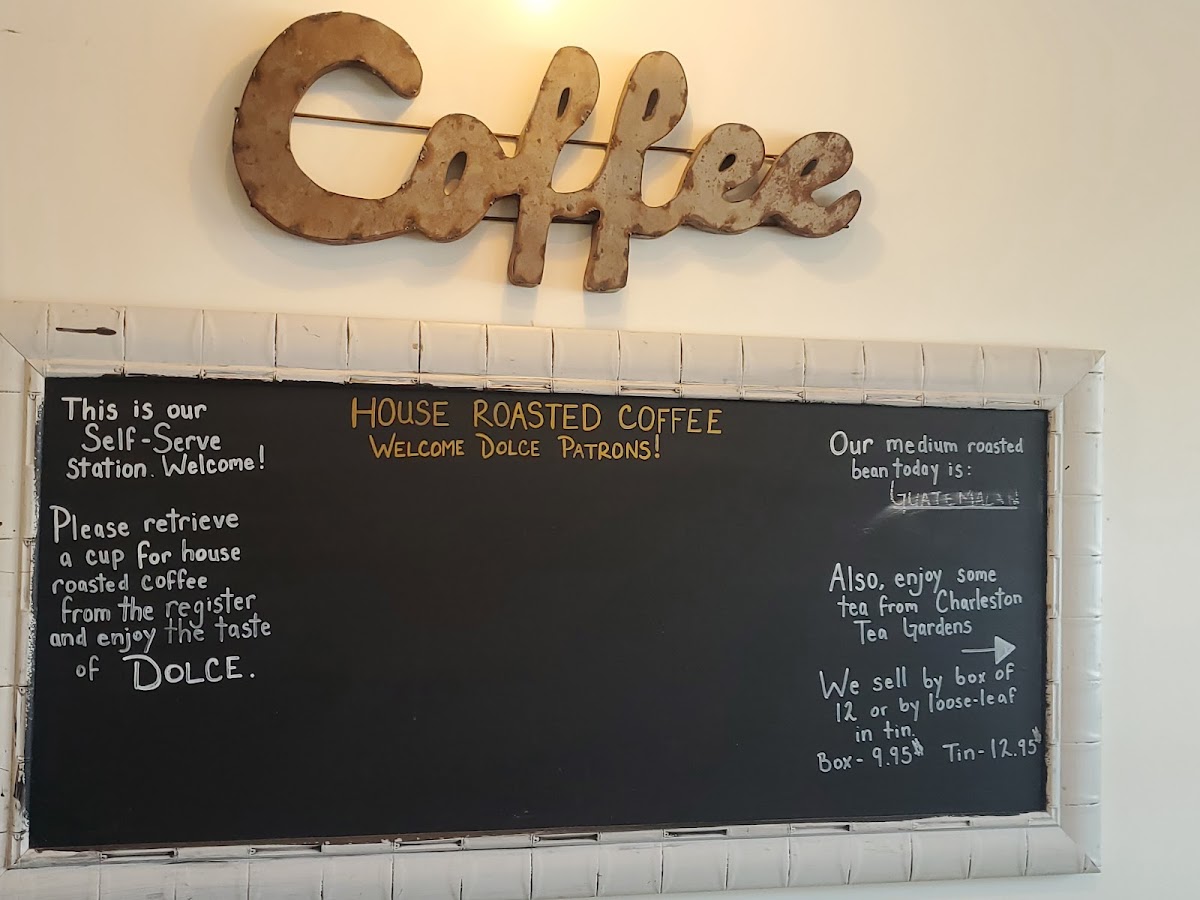 Coffee
This is our
Self-Serve
Station. Welcome!
Please retrieve
a cup for house
roasted coffee
from the register
and enjoy the taste
of DOLCE.
HOUSE ROASTED COFFEE
WELCOME DOLCE PATRONS!
Our medium roasted
bean today is:
GUATEMALAN
Also, enjoy some
tea from Charleston
Tea Gardens
We sell by box of
12 or by loose-leaf
in tin.
Box - 9.95$ Tin - 12.95$